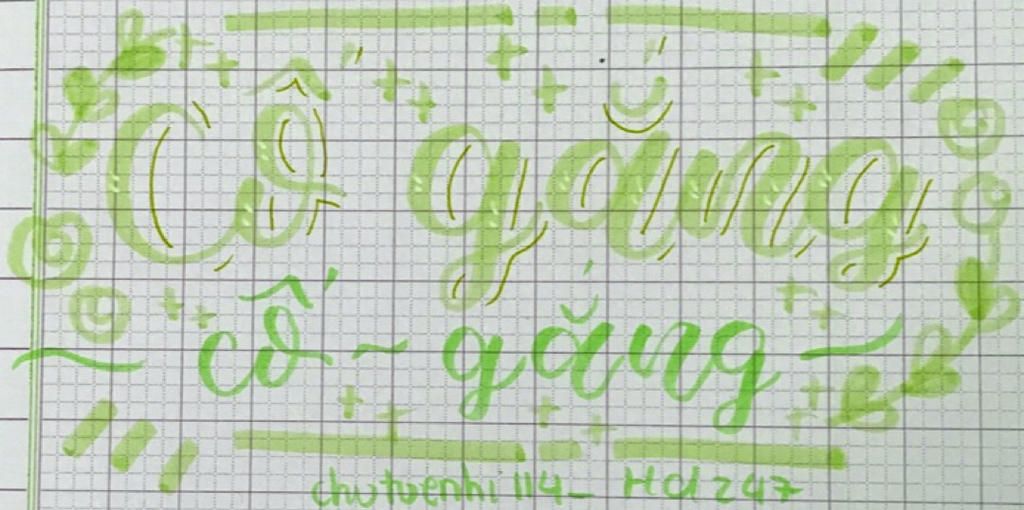 Cố gắng
cố ~ gắng
chutuenhi 114_ Hd 247